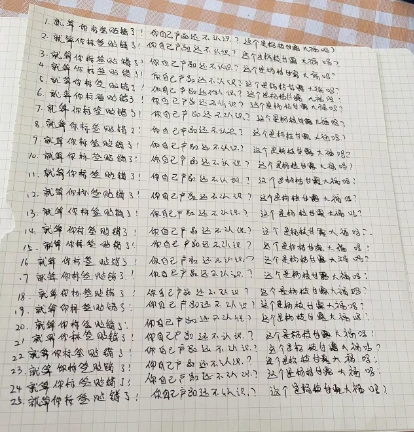 1. 就算你标签贴错了! 你自己产品还不认识? 这个是杨枝甘露大福吗?
2. 就算你标签贴错了! 你自己产品还不认识? 这个是杨枝甘露大福吗?
3. 就算你标签贴错了! 你自己产品还不认识? 这个是杨枝甘露大福吗?
4. 就算你标签贴错了! 你自己产品还不认识? 这个是杨枝甘露大福吗?
5. 就算你标签贴错了! 你自己产品还不认识? 这个是杨枝甘露大福吗?
6. 就算你标签贴错了! 你自己产品还不认识? 这个是杨枝甘露大福吗?
7. 就算你标签贴错了! 你自己产品还不认识? 这个是杨枝甘露大福吗?
8. 就算你标签贴错了! 你自己产品还不认识? 这个是杨枝甘露大福吗?
9. 就算你标签贴错了! 你自己产品还不认识? 这个是杨枝甘露大福吗?
10. 就算你标签贴错了! 你自己产品还不认识? 这个是杨枝甘露大福吗?
11. 就算你标签贴错了! 你自己产品还不认识? 这个是杨枝甘露大福吗?
12. 就算你标签贴错了! 你自己产品还不认识? 这个是杨枝甘露大福吗?
13. 就算你标签贴错了! 你自己产品还不认识? 这个是杨枝甘露大福吗?
14. 就算你标签贴错了! 你自己产品还不认识? 这个是杨枝甘露大福吗?
15. 就算你标签贴错了! 你自己产品还不认识? 这个是杨枝甘露大福吗?
16. 就算你标签贴错了! 你自己产品还不认识? 这个是杨枝甘露大福吗?
17. 就算你标签贴错了! 你自己产品还不认识? 这个是杨枝甘露大福吗?
18. 就算你标签贴错了! 你自己产品还不认识? 这个是杨枝甘露大福吗?
19. 就算你标签贴错了! 你自己产品还不认识? 这个是杨枝甘露大福吗?
20. 就算你标签贴错了! 你自己产品还不认识? 这个是杨枝甘露大福吗?
21. 就算你标签贴错了! 你自己产品还不认识? 这个是杨枝甘露大福吗?
22. 就算你标签贴错了! 你自己产品还不认识? 这个是杨枝甘露大福吗?
23. 就算你标签贴错了! 你自己产品还不认识? 这个是杨枝甘露大福吗?
24. 就算你标签贴错了! 你自己产品还不认识? 这个是杨枝甘露大福吗?
25. 就算你标签贴错了! 你自己产品还不认识? 这个是杨枝甘露大福吗?